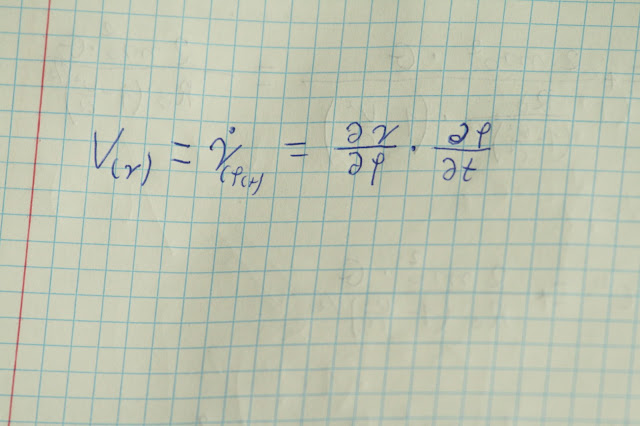 V(r) = ṙ(φ(t) = ∂r/∂φ · ∂φ/∂t